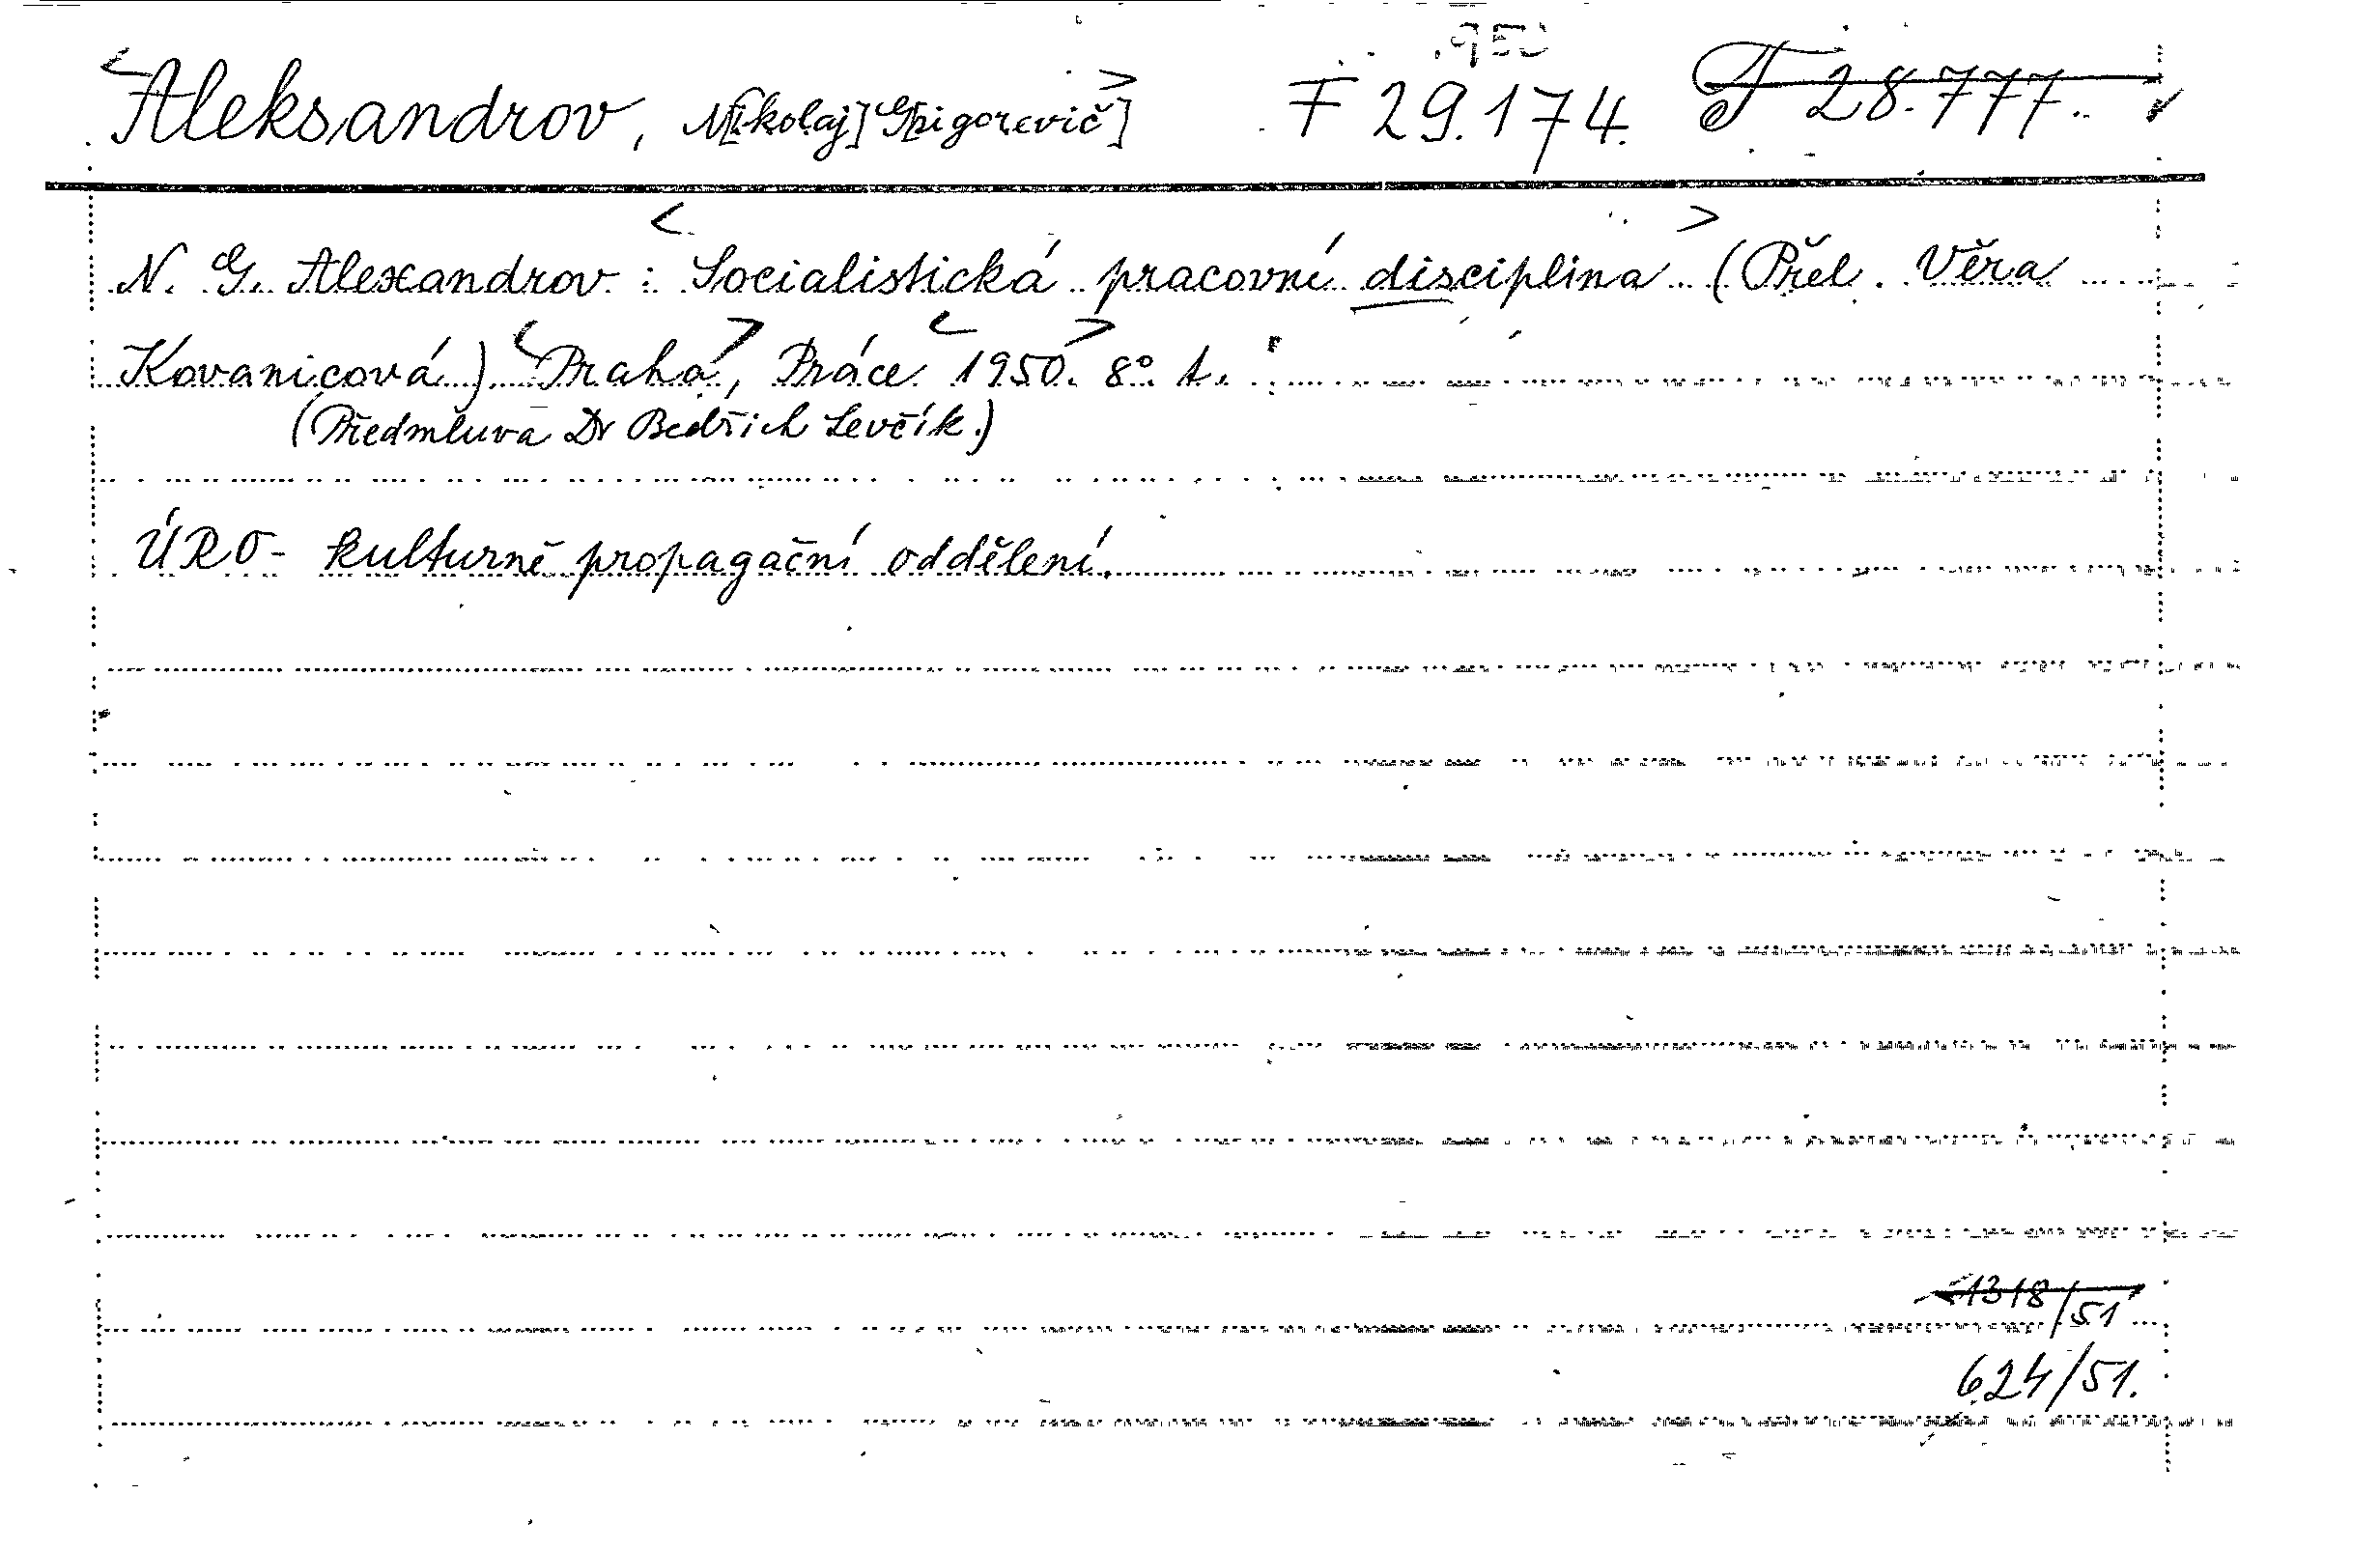 950
<Aleksandrov, N[ikolaj] G[rigorevič]> F 29.174. F 28.777.
N. G. Alexandrov: <Socialistická pracovní disciplina> (Přel. Věra
Kovanicová). <Praha>, Práce <1950>. 8° t.
(Předmluva Dr Bedřich Levčík.)
ÚRO - kulturně propagační oddělení.
1318/51
624/51.